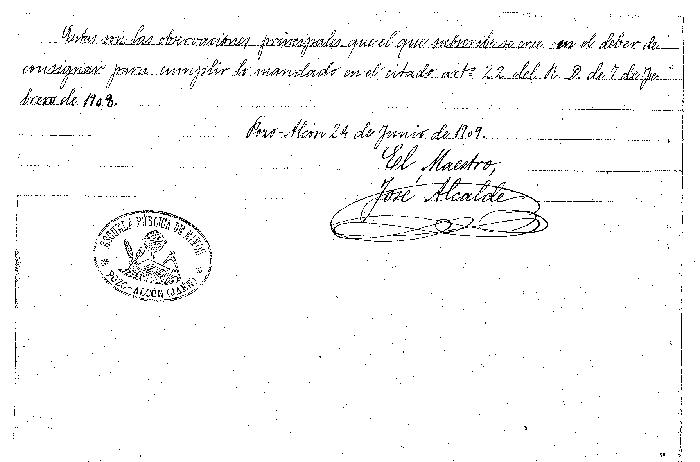 Estas son las observaciones principales que el que subscribe se cree en el deber de
consignar para cumplir lo mandado en el citado artº 22 del R. D. de 7 de Fe-
brero de 1908.
Pozo-Alcón 24 de Junio de 1909.
El Maestro,
José Alcalde
ESCUELA PÚBLICA DE NIÑOS
POZO-ALCÓN (JAÉN)